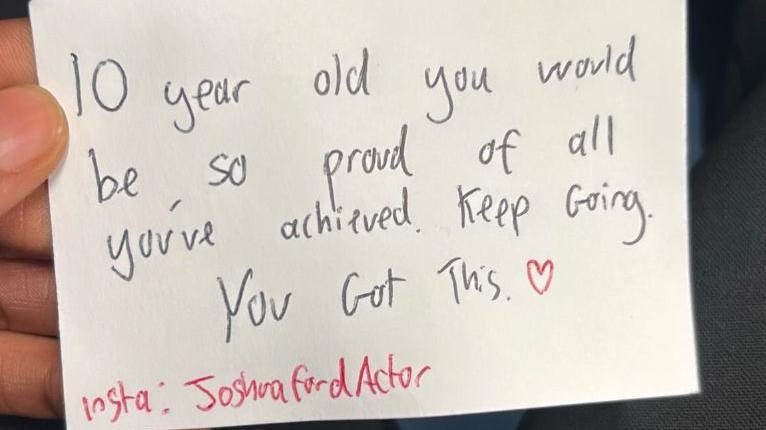 10 year old you would
be so proud of all
you've achieved. Keep Going.
You Got This. ♡
insta: JoshuafordActor